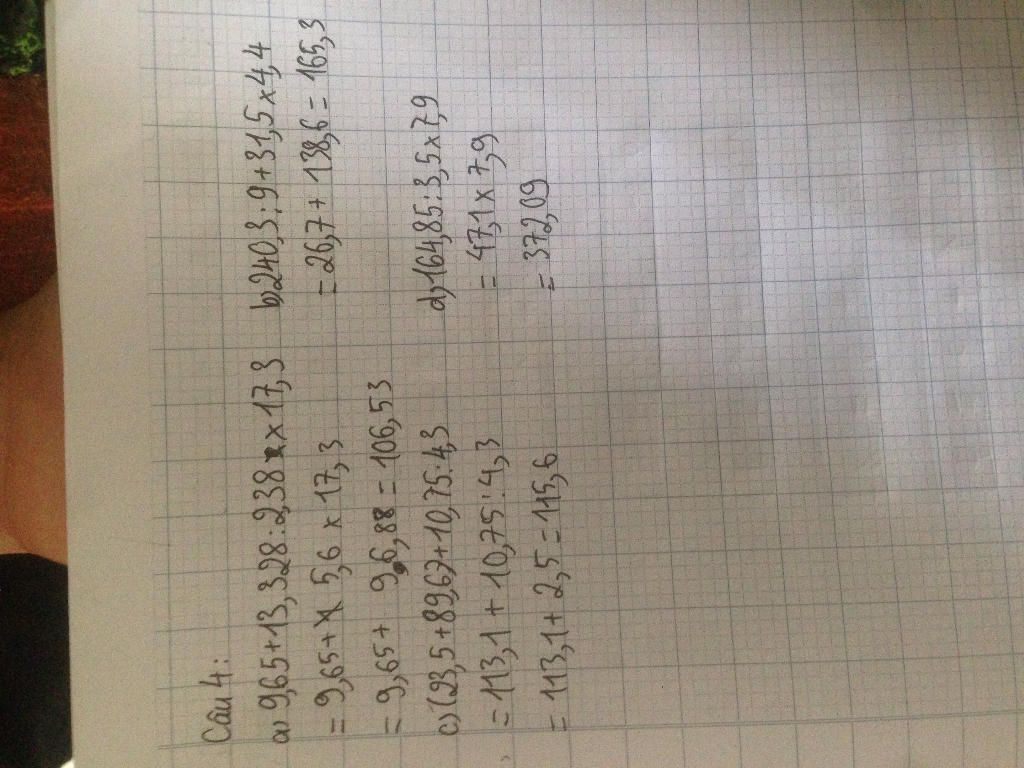 Câu 4:
a) 9,65+13,328:2,38 x 17,3
= 9,65+ 5,6 x 17,3
= 9,65+ 96,88 = 106,53
b) 240,3:9+31,5x4,4
= 26,7+138,6= 165,3
c) (23,5+89,6)+10,75:4,3
= 113,1 + 10,75:4,3
= 113,1+ 2,5=115,6
d) 164,85:3,5x7,9
= 47,1x7,9
= 372,09